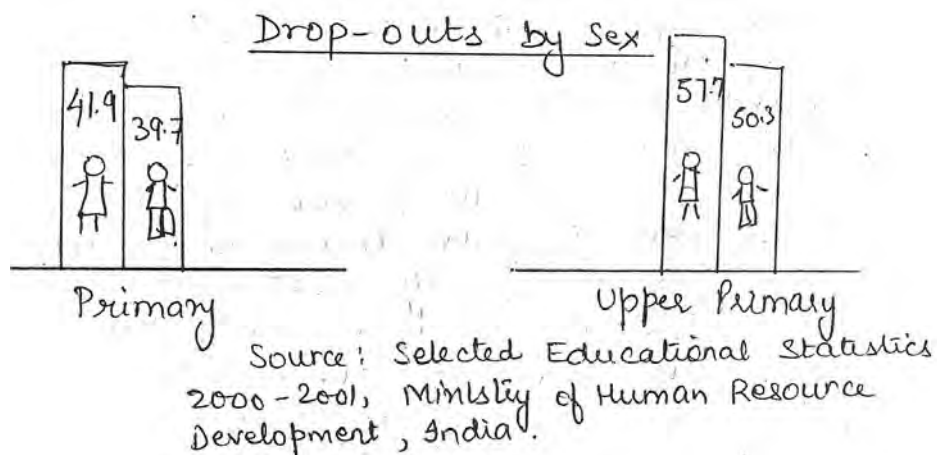 Drop-outs by Sex
41.9
39.7
57.7
50.3
Primary
Upper Primary
Source: Selected Educational Statistics
2000-2001, Ministry of Human Resource
Development, India.